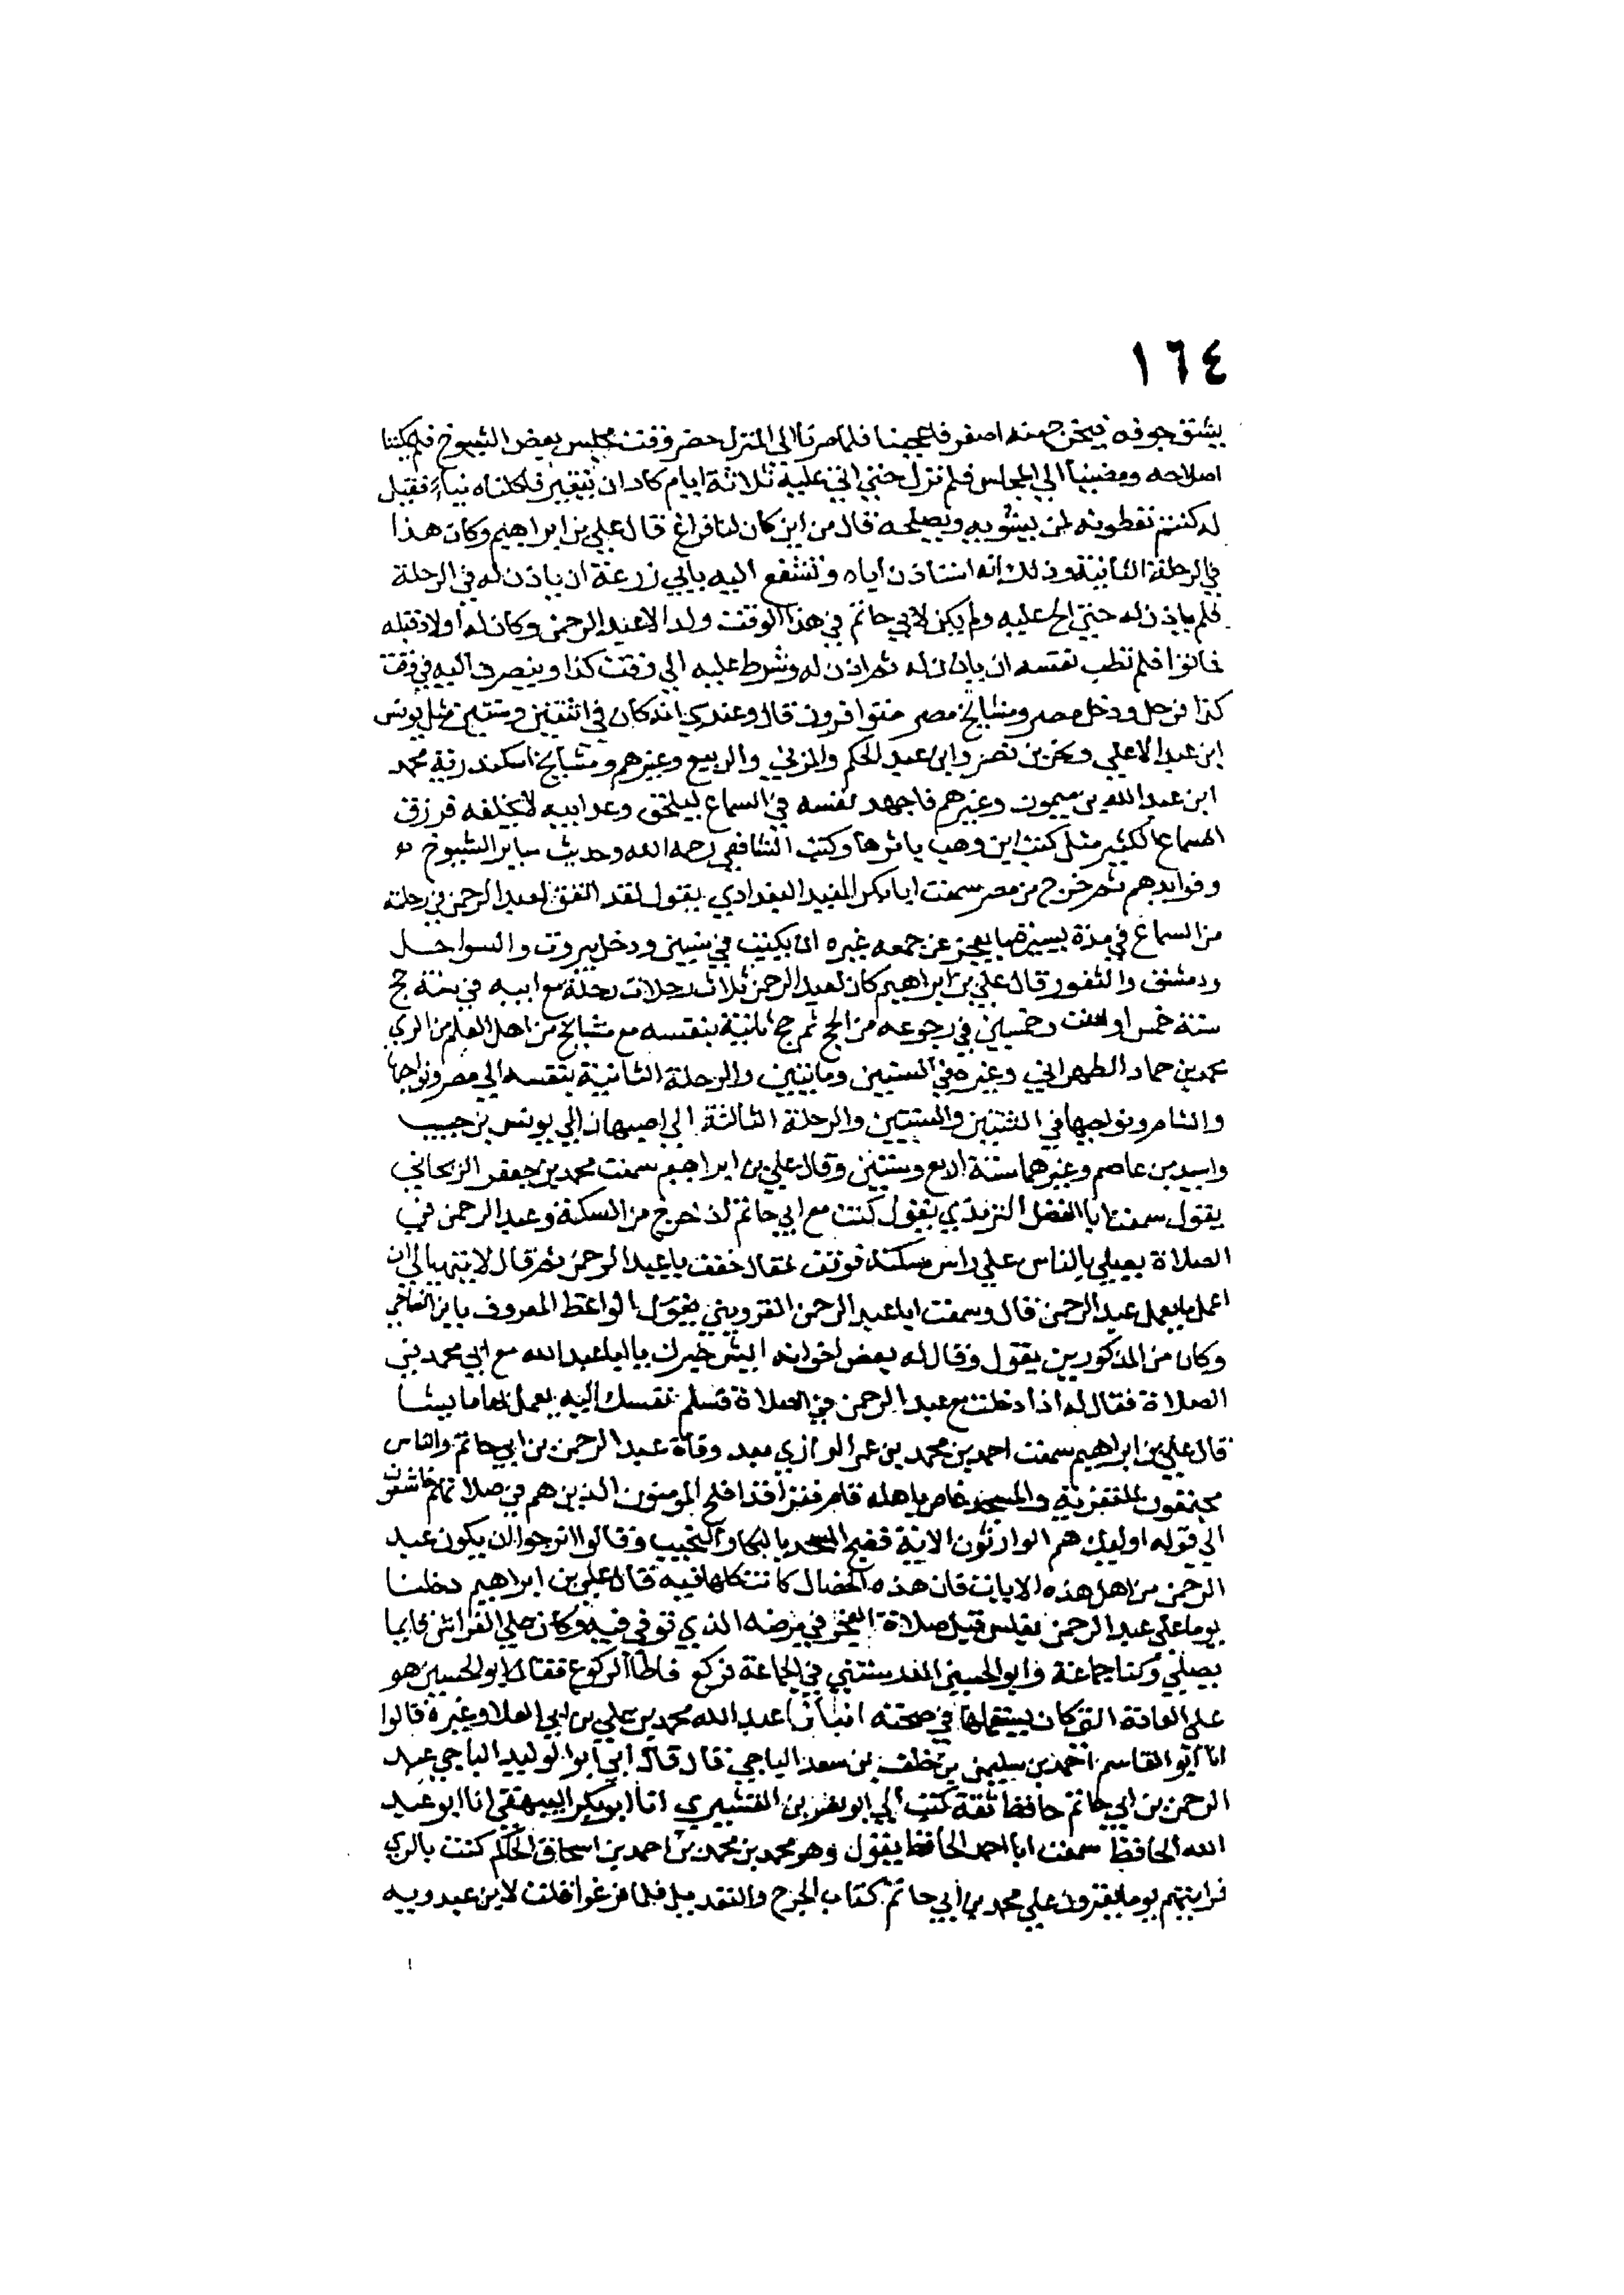 ١٦٤
يشق جوفه فيخرج منه اصفر فاعجبنا فلما صرنا الي المنزل حضر وقت مجلس بعض الشيوخ فلم يمكننا
اصلاحه ومضينا الي المجلس فلم نزل حتي اتي عليه ثلاثة ايام كاد ان يتغير فاكلناه نياً فقيل
له كنتم تعطونه لمن يشويه ويصلحه قال من اين كان لنا فراغ قال علي بن ابراهيم وكان هذا
في الرحلة الثانية وذلك انه استاذن اباه وتشفع اليه بابي زرعة ان ياذن له في الرحلة
فلم ياذن له حتي الح عليه ولم يكن لابي حاتم في هذا الوقت ولد الا عبد الرحمن وكان له اولاد قبله
فماتوا فلم تطب نفسه ان ياذن له ثم اذن له وشرط عليه الي وقت كذا وينصرف اليه في وقت
كذا فرحل ودخل مصر ومشايخ مصر متوافرون قال وعندي انه كان في اثنتين وستين مثل يونس
ابن عبد الاعلي وبحر بن نصر وابن عبد الحكم والمزني والربيع وغيرهم ومشايخ اسكندرية محمد
ابن عبد الله بن ميمون وغيرهم فاجهد نفسه في السماع ليلحق وعد ابيه لا يخلفه فرزق
السماع الكثير مثل كتب ابن وهب باسرها وكتب الشافعي رحمه الله وحديث ساير الشيوخ
وفوايدهم ثم خرج من مصر سمعت ابا بكر المفيد البغدادي يقول لقد اتفق لعبد الرحمن في رحلته
من السماع في مدة يسيرة ما يعجز عن جمعه غيره ان يكتب في سنين ودخل بيروت والسواحل
ودمشق والثغور قال علي بن ابراهيم كان لعبد الرحمن ثلاث رحلات رحلة مع ابيه في سنة حج
سنة خمس او ست وخمسين في رجوعه من الحج ثم حج ثانية بنفسه مع مشايخ من اهل العلم من الري
محمد بن حماد الطهراني وغيره في الستين ومايتين والرحلة الثانية بنفسه الي مصر ونواحيها
والشام ونواحيها في اثنتين والستين والرحلة الثالثة الي اصبهان الي يونس بن حبيب
واسيد بن عاصم وغيرهما سنة اربع وستين وقال علي بن ابراهيم سمعت محمد بن جعفر الزنجاني
يقول سمعت ابا الفضل الترمذي يقول كنت مع ابي حاتم اذ خرج من السكة وعبد الرحمن في
الصلاة يصلي بالناس علي راس سكته فوقف فقال خفف يا عبد الرحمن ثم قال لا يتهيا لي ان
اعمل ما يعمل عبد الرحمن قال وسمعت ابا عبد الرحمن القزويني يقول الواعظ المعروف بابن
وكان من المذكورين يقول وقال له بعض اخوانه ايش خبرك يا ابا عبد الله مع ابي محمد في
الصلاة فقال له اذا دخلت مع عبد الرحمن في الصلاة فسلم نفسك اليه يعمل بها ما يشا
قال علي بن ابراهيم سمعت احمد بن محمد بن عمر الرازي بعد وفاة عبد الرحمن بن ابي حاتم والناس
مجتمعون للتعزية والمسجد غاص باهله قام فقرا قد افلح المومنون الذين هم في صلاتهم خاشعون
الي قوله اوليك هم الوارثون الاية فضج المسجد بالبكا والنحيب وقالوا نرجوا ان يكون عبد
الرحمن من اهل هذه الايات فان هذه الخصال كانت كلها فيه قال علي بن ابراهيم دخلنا
يوما علي عبد الرحمن بغلس قبل صلاة الفجر في مرضه الذي توفي فيه وكان علي الفراش قايما
يصلي وكنا جماعة وابو الحسين الدرستيني في الجماعة فركع فاطال الركوع فقال ابو الحسين هو
علي العادة التي كان يستعملها في صحته انبانا عبد الله محمد بن علي بن ابي العلا وغيره قالوا
انا ابو القاسم احمد بن سليمن بن خلف بن سعد الباجي قال قال ابي ابو الوليد الباجي عبد
الرحمن بن ابي حاتم حافظ ثقة كتب الي ابو نصر بن القشيري انا ابو بكر البيهقي انا ابو عبد
الله الحافظ سمعت ابا احمد الحافظ يقول وهو محمد بن محمد بن احمد بن اسحاق الحاكم كنت بالري
فرايتهم يوما يقرون علي محمد بن ابي حاتم كتاب الجرح والتعديل فلما فرغوا قلت لابن عبدويه